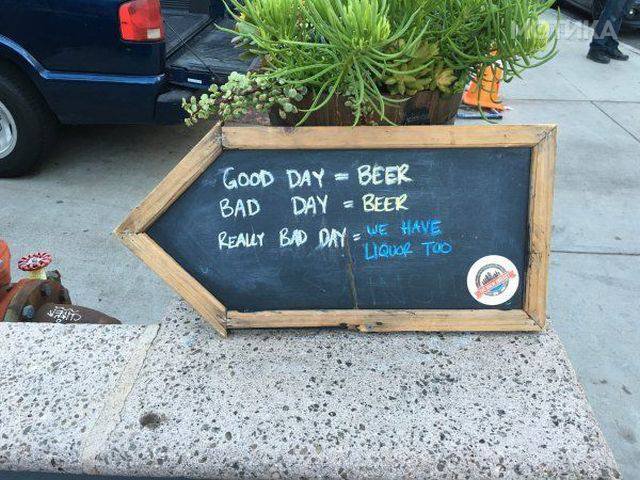 МОТИКА
GOOD DAY = BEER
BAD DAY = BEER
REALLY BAD DAY = WE HAVE
LIQUOR TOO